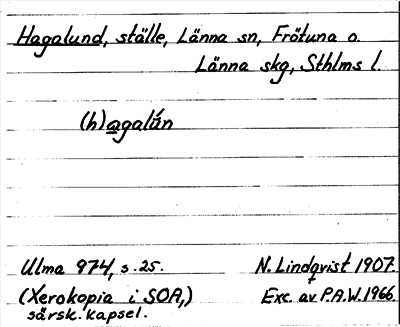 Hagalund, ställe, Länna sn, Frötuna o.
Länna skg, Sthlms l.
(h)agalún
Ulma 974, s. 25. N. Lindqvist 1907.
(Xerokopia i SOA,) Exc. av P.A.W. 1966.
särsk. kapsel.